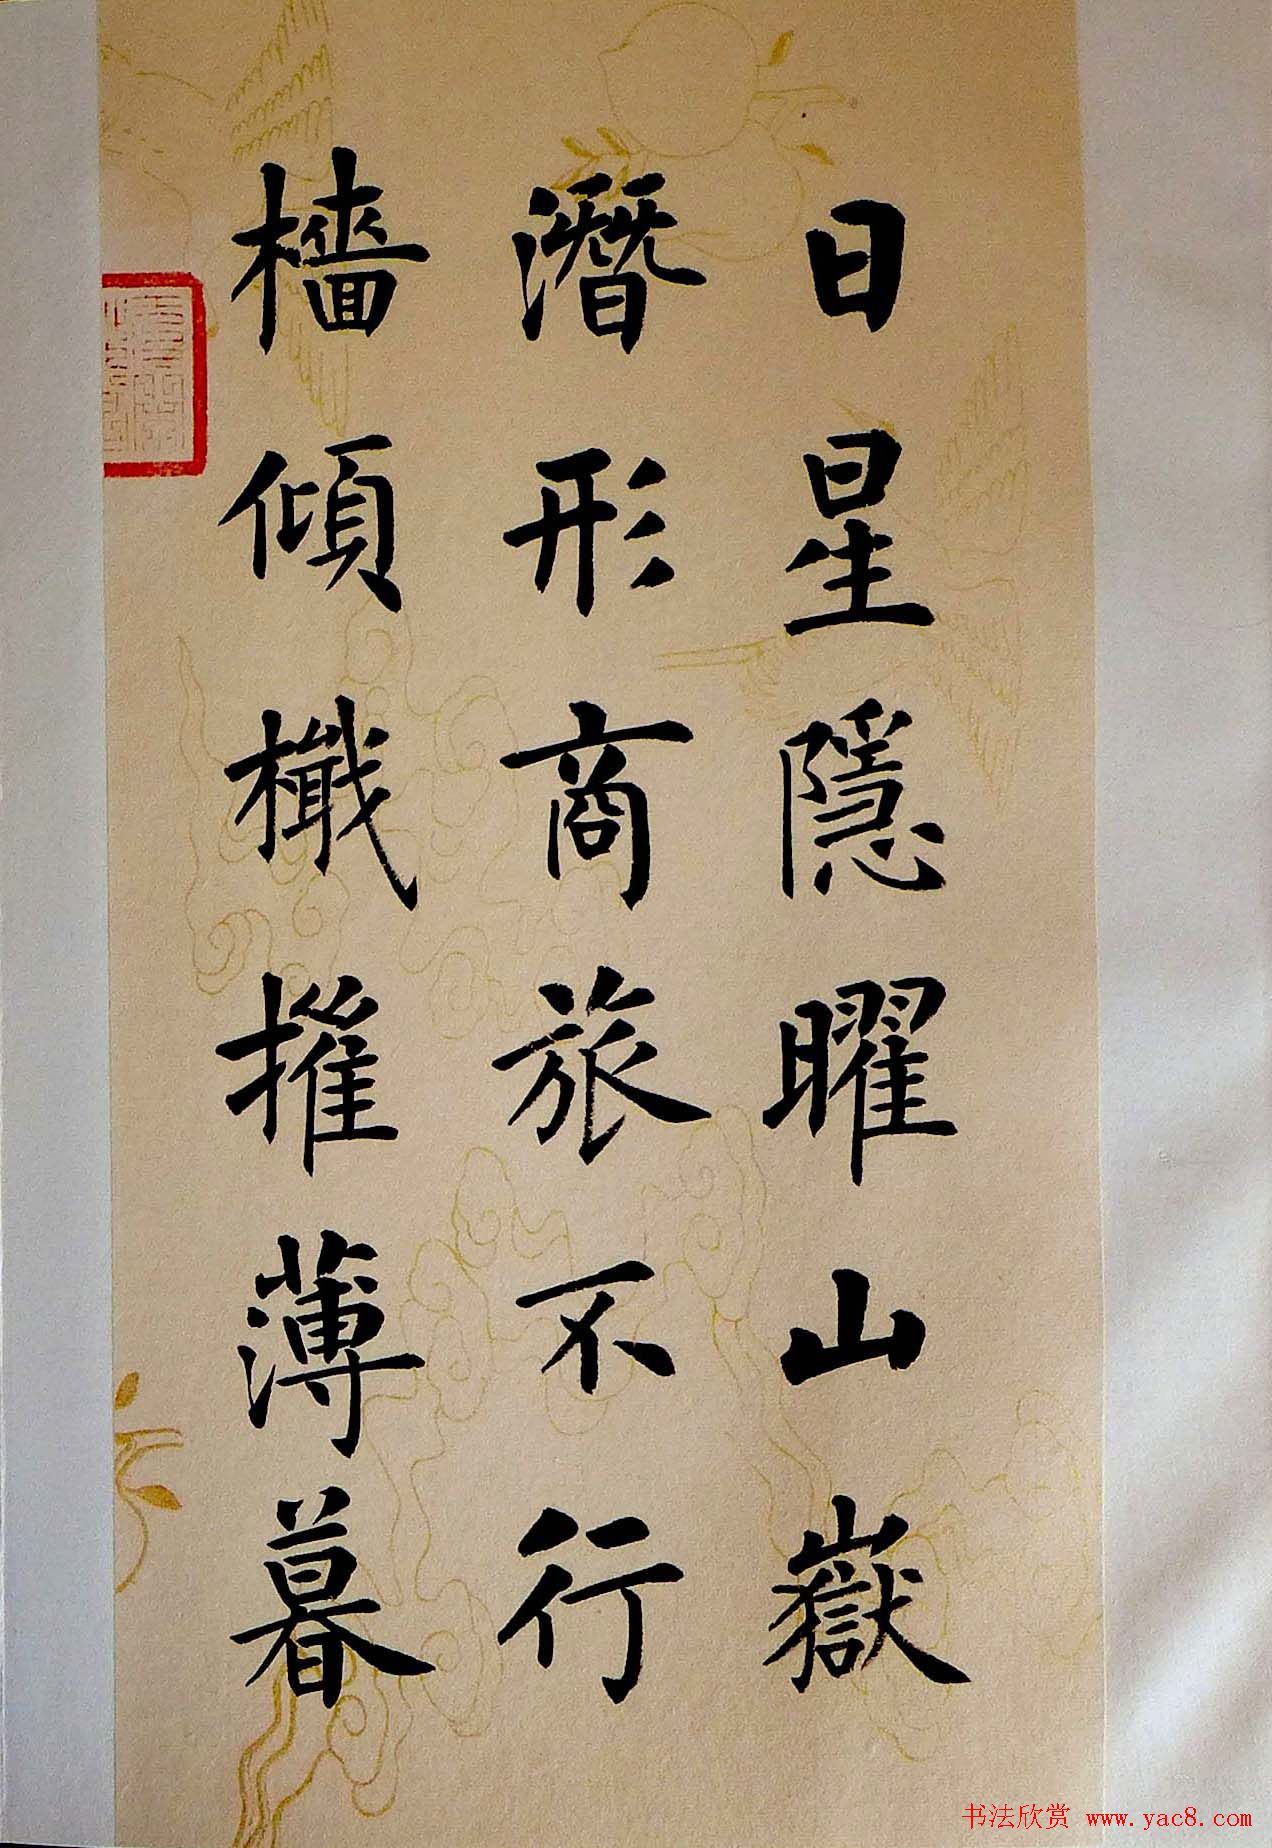 日星隱曜山嶽
潛形商旅不行
檣傾檝摧薄暮
书法欣赏 www.yac8.com